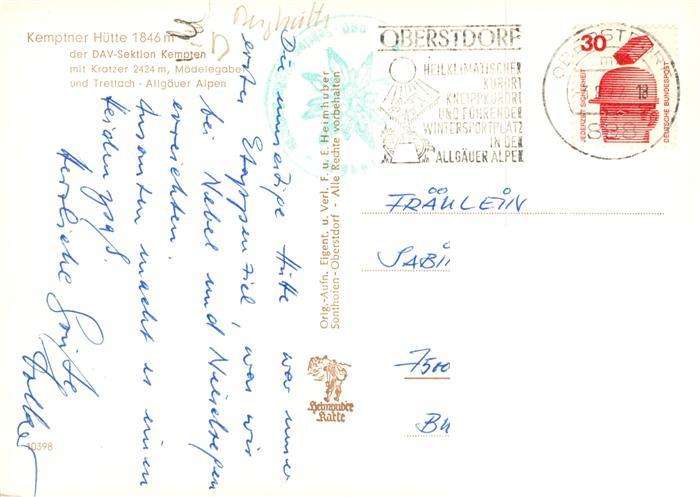 Kemptner Hütte 1846 m
der DAV-Sektion Kempten
mit Kratzer 2424 m, Mädelegabel
und Trettach - Allgäuer Alpen
Die umseitige Hütte war unser
erstes Etappenziel, was wir
bei Nebel und Nieselregen
erreichten.
Ansonsten macht es einen
Heidenspaß.
Herzliche Grüße
10398
Orig.-Aufn. Eigent. u. Verl. F. u. E. Heimhuber
Sonthofen-Oberstdorf - Alle Rechte vorbehalten
Heimhuber
Karte
OBERSTDORF
HEILKLIMATISCHER
KURORT
KNEIPPKURORT
UND FÜHRENDER
WINTERSPORTPLATZ
IN DEN
ALLGÄUER ALPEN
30
JEDERZEIT SICHERHEIT
DEUTSCHE BUNDESPOST
FRÄULEIN
7500